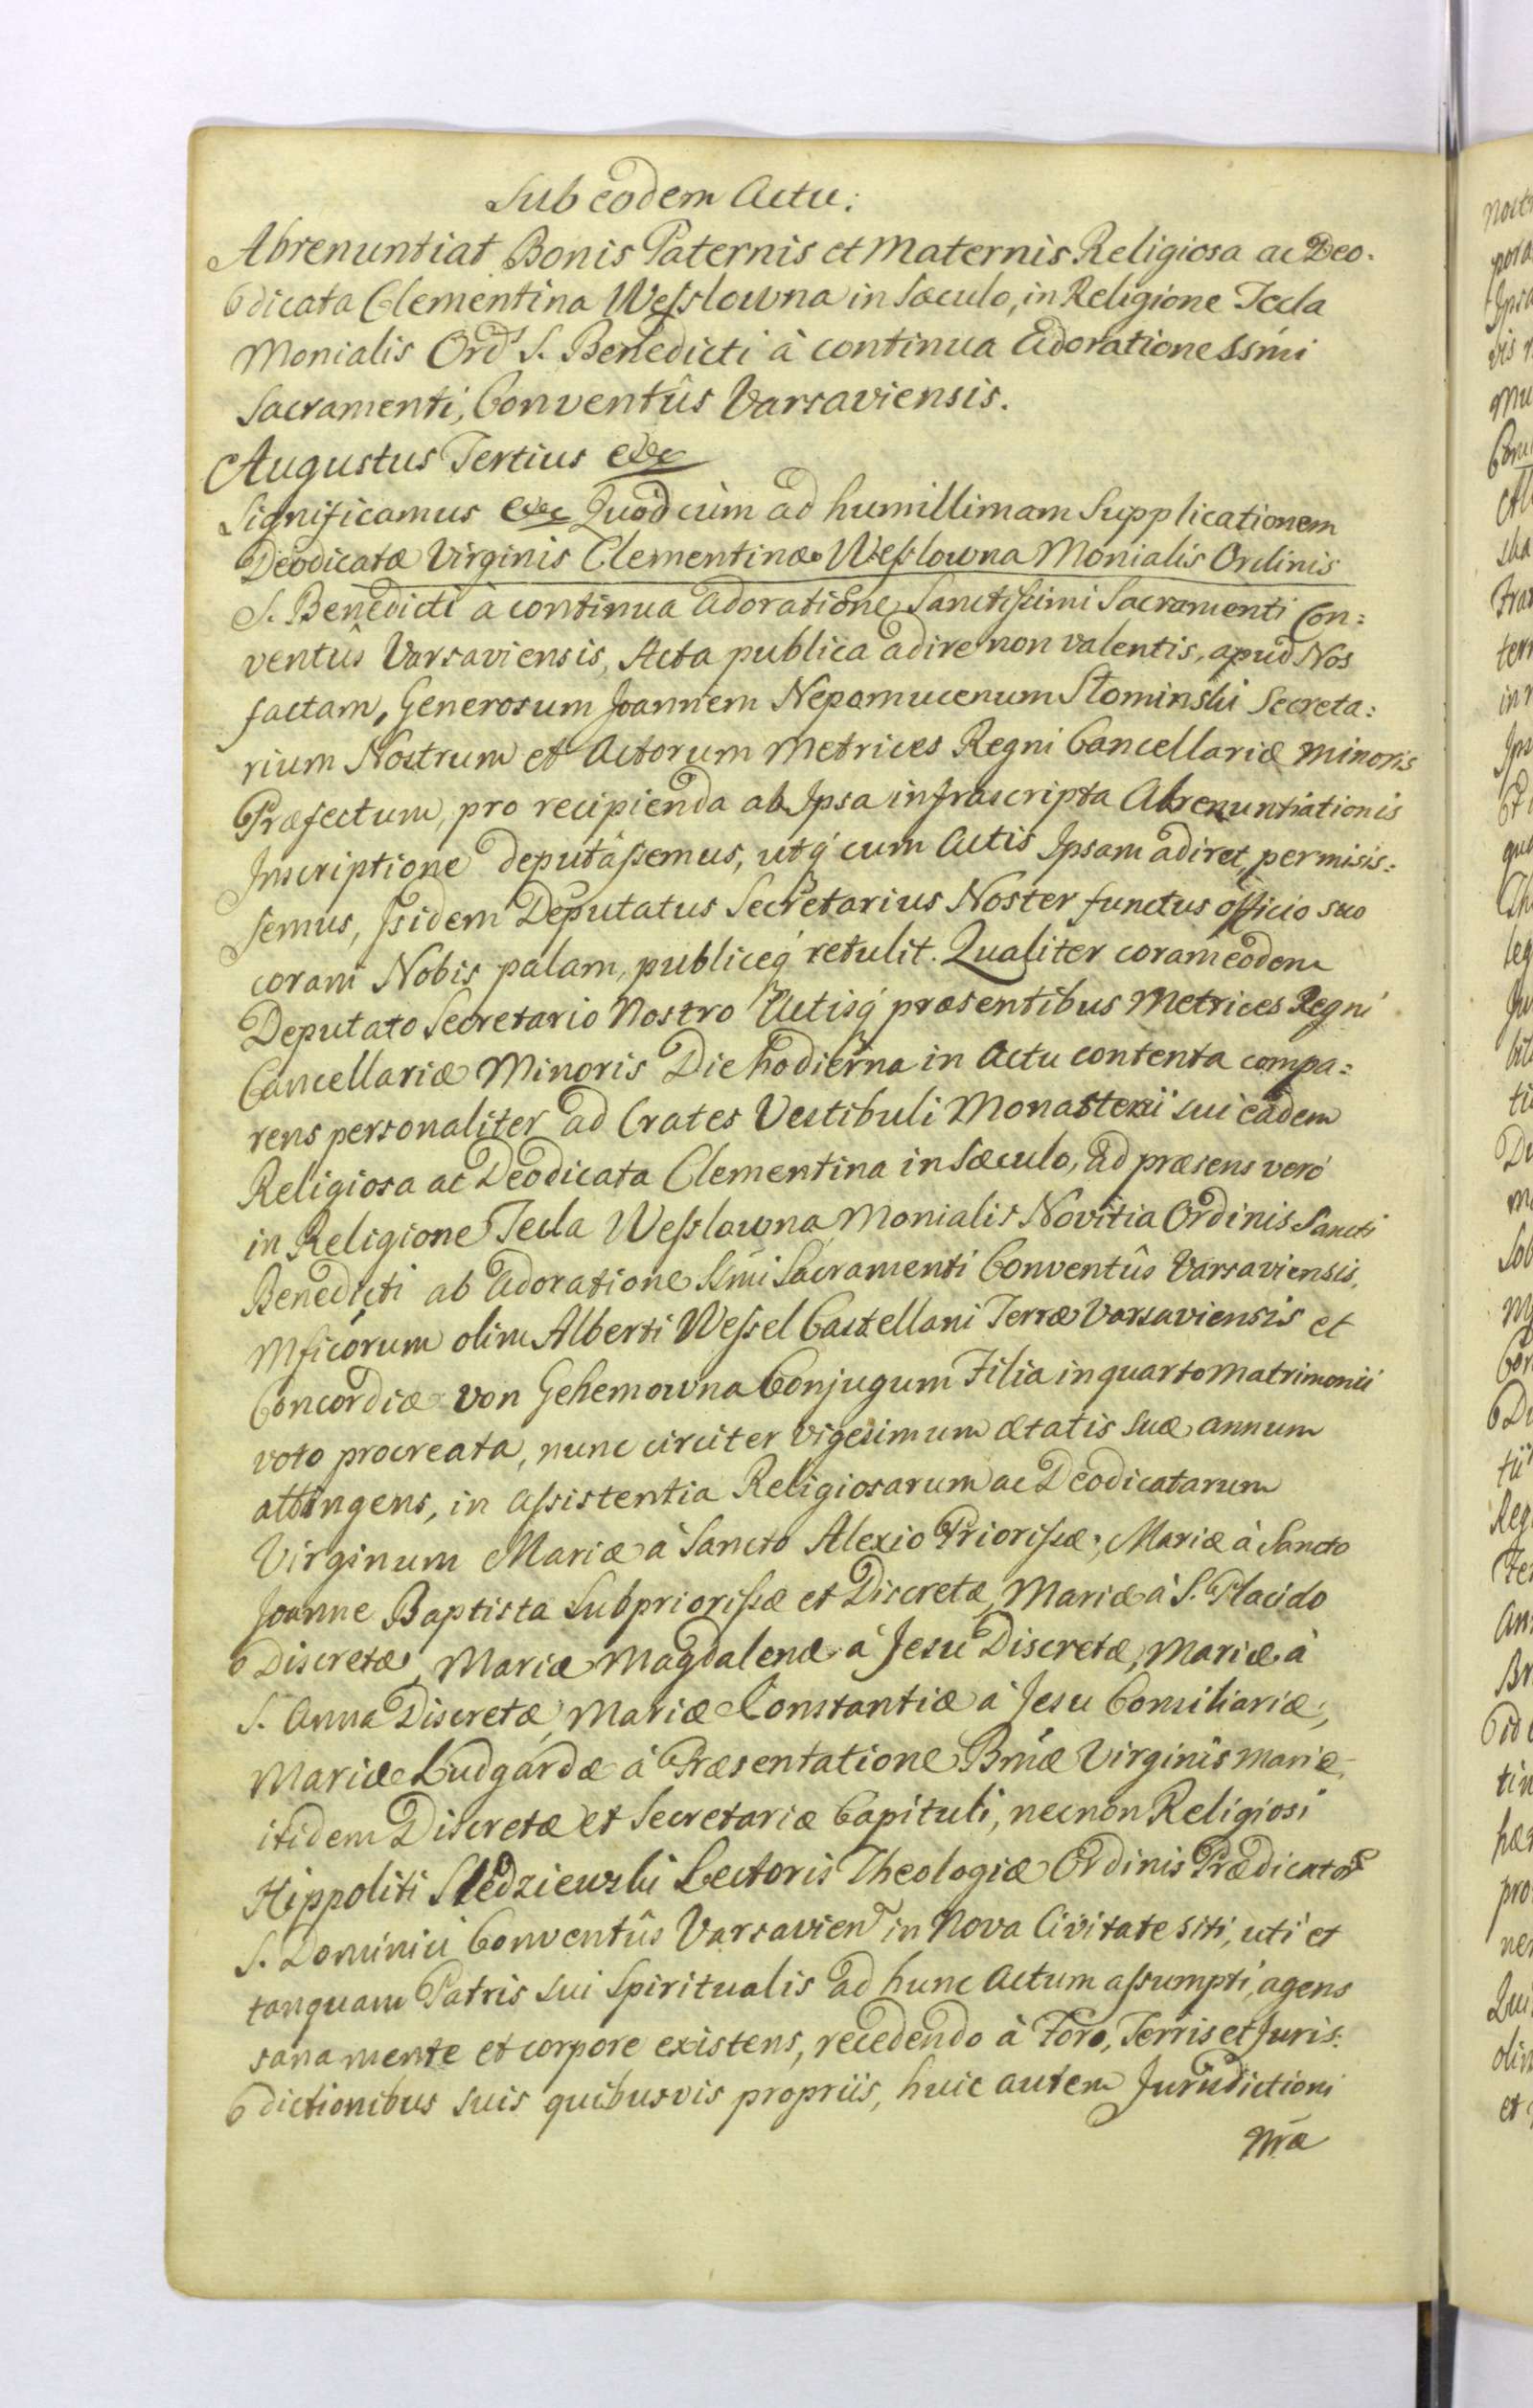 Sub eodem Actu.
Abrenuntiat Bonis Paternis et Maternis Religiosa ac Deo-
dicata Clementina Wesslowna in Sæculo, in Religione Tecla
Monialis Ord̃s S. Benedicti à continua Adoratione SSm̃i
Sacramenti, Conventûs Varsaviensis.
Augustus Tertius etc
Significamus etc Quod cùm ad humillimam Supplicationem
Deodicatæ Virginis Clementinæ Wesslowna Monialis Ordinis
S. Benedicti à continua Adoratione Sanctissimi Sacramenti Con:
ventûs Varsaviensis, Acta publica adire non valentis, apud Nos
factam, Generosum Joannem Nepomucenum Słominski Secreta:
rium Nostrum et Actorum Metrices Regni Cancellariæ Minoris
Præfectum, pro recipienda ab Ipsa infrascripta Abrenuntiationis
Inscriptione deputassemus, utq́ cum Actis Ipsam adiret, permisis:
semus, Isidem Deputatus Secretarius Noster functus officio suo
coram Nobis palam, publiceq́ retulit. Qualiter coram eodem
Deputato Secretario Nostro Actisq́ præsentibus Metrices Regni
Cancellariæ Minoris Die hodierna in Actu contenta compa:
rens personaliter ad Crates Vestibuli Monasterii sui eadem
Religiosa ac Deodicata Clementina in Sæculo, ad præsens verò
in Religione Tecla Wesslowna Monialis Novitia Ordinis Sancti
Benedicti ab Adoratione SSm̃i Sacramenti Conventûs Varsaviensis,
Mficorum olim Alberti Wessel Castellani Terræ Varsaviensis et
Concordiæ von Gehemowna Conjugum Filia in quarto Matrimonii
voto procreata, nunc circiter vigesimum ætatis suæ annum
attingens, in assistentia Religiosarum ac Deodicatarum
Virginum Mariæ à Sancto Alexio Priorissæ, Mariæ à Sancto
Joanne Baptista Subpriorissæ et Discretæ, Mariæ à S. Placido
Discretæ, Mariæ Magdalenæ à Jesu Discretæ, Mariæ à
S. Anna Discretæ, Mariæ Constantiæ à Jesu Consiliariæ,
Mariæ Ludgardæ à Præsentatione Bm̃æ Virginis Mariæ,
itidem Discretæ et Secretariæ Capituli, necnon Religiosi
Hippoliti Sledziewski Lectoris Theologiæ Ordinis Prædicator̃
S. Dominici Conventûs Varsavien̄ in Nova Civitate siti, uti et
tanquam Patris sui Spiritualis ad hunc Actum assumpti, agens
sana mente et corpore existens, recedendo à Foro, Terris et Juris:
dictionibus suis quibusvis propriis, huic autem Jurisdictioni
nr̃a